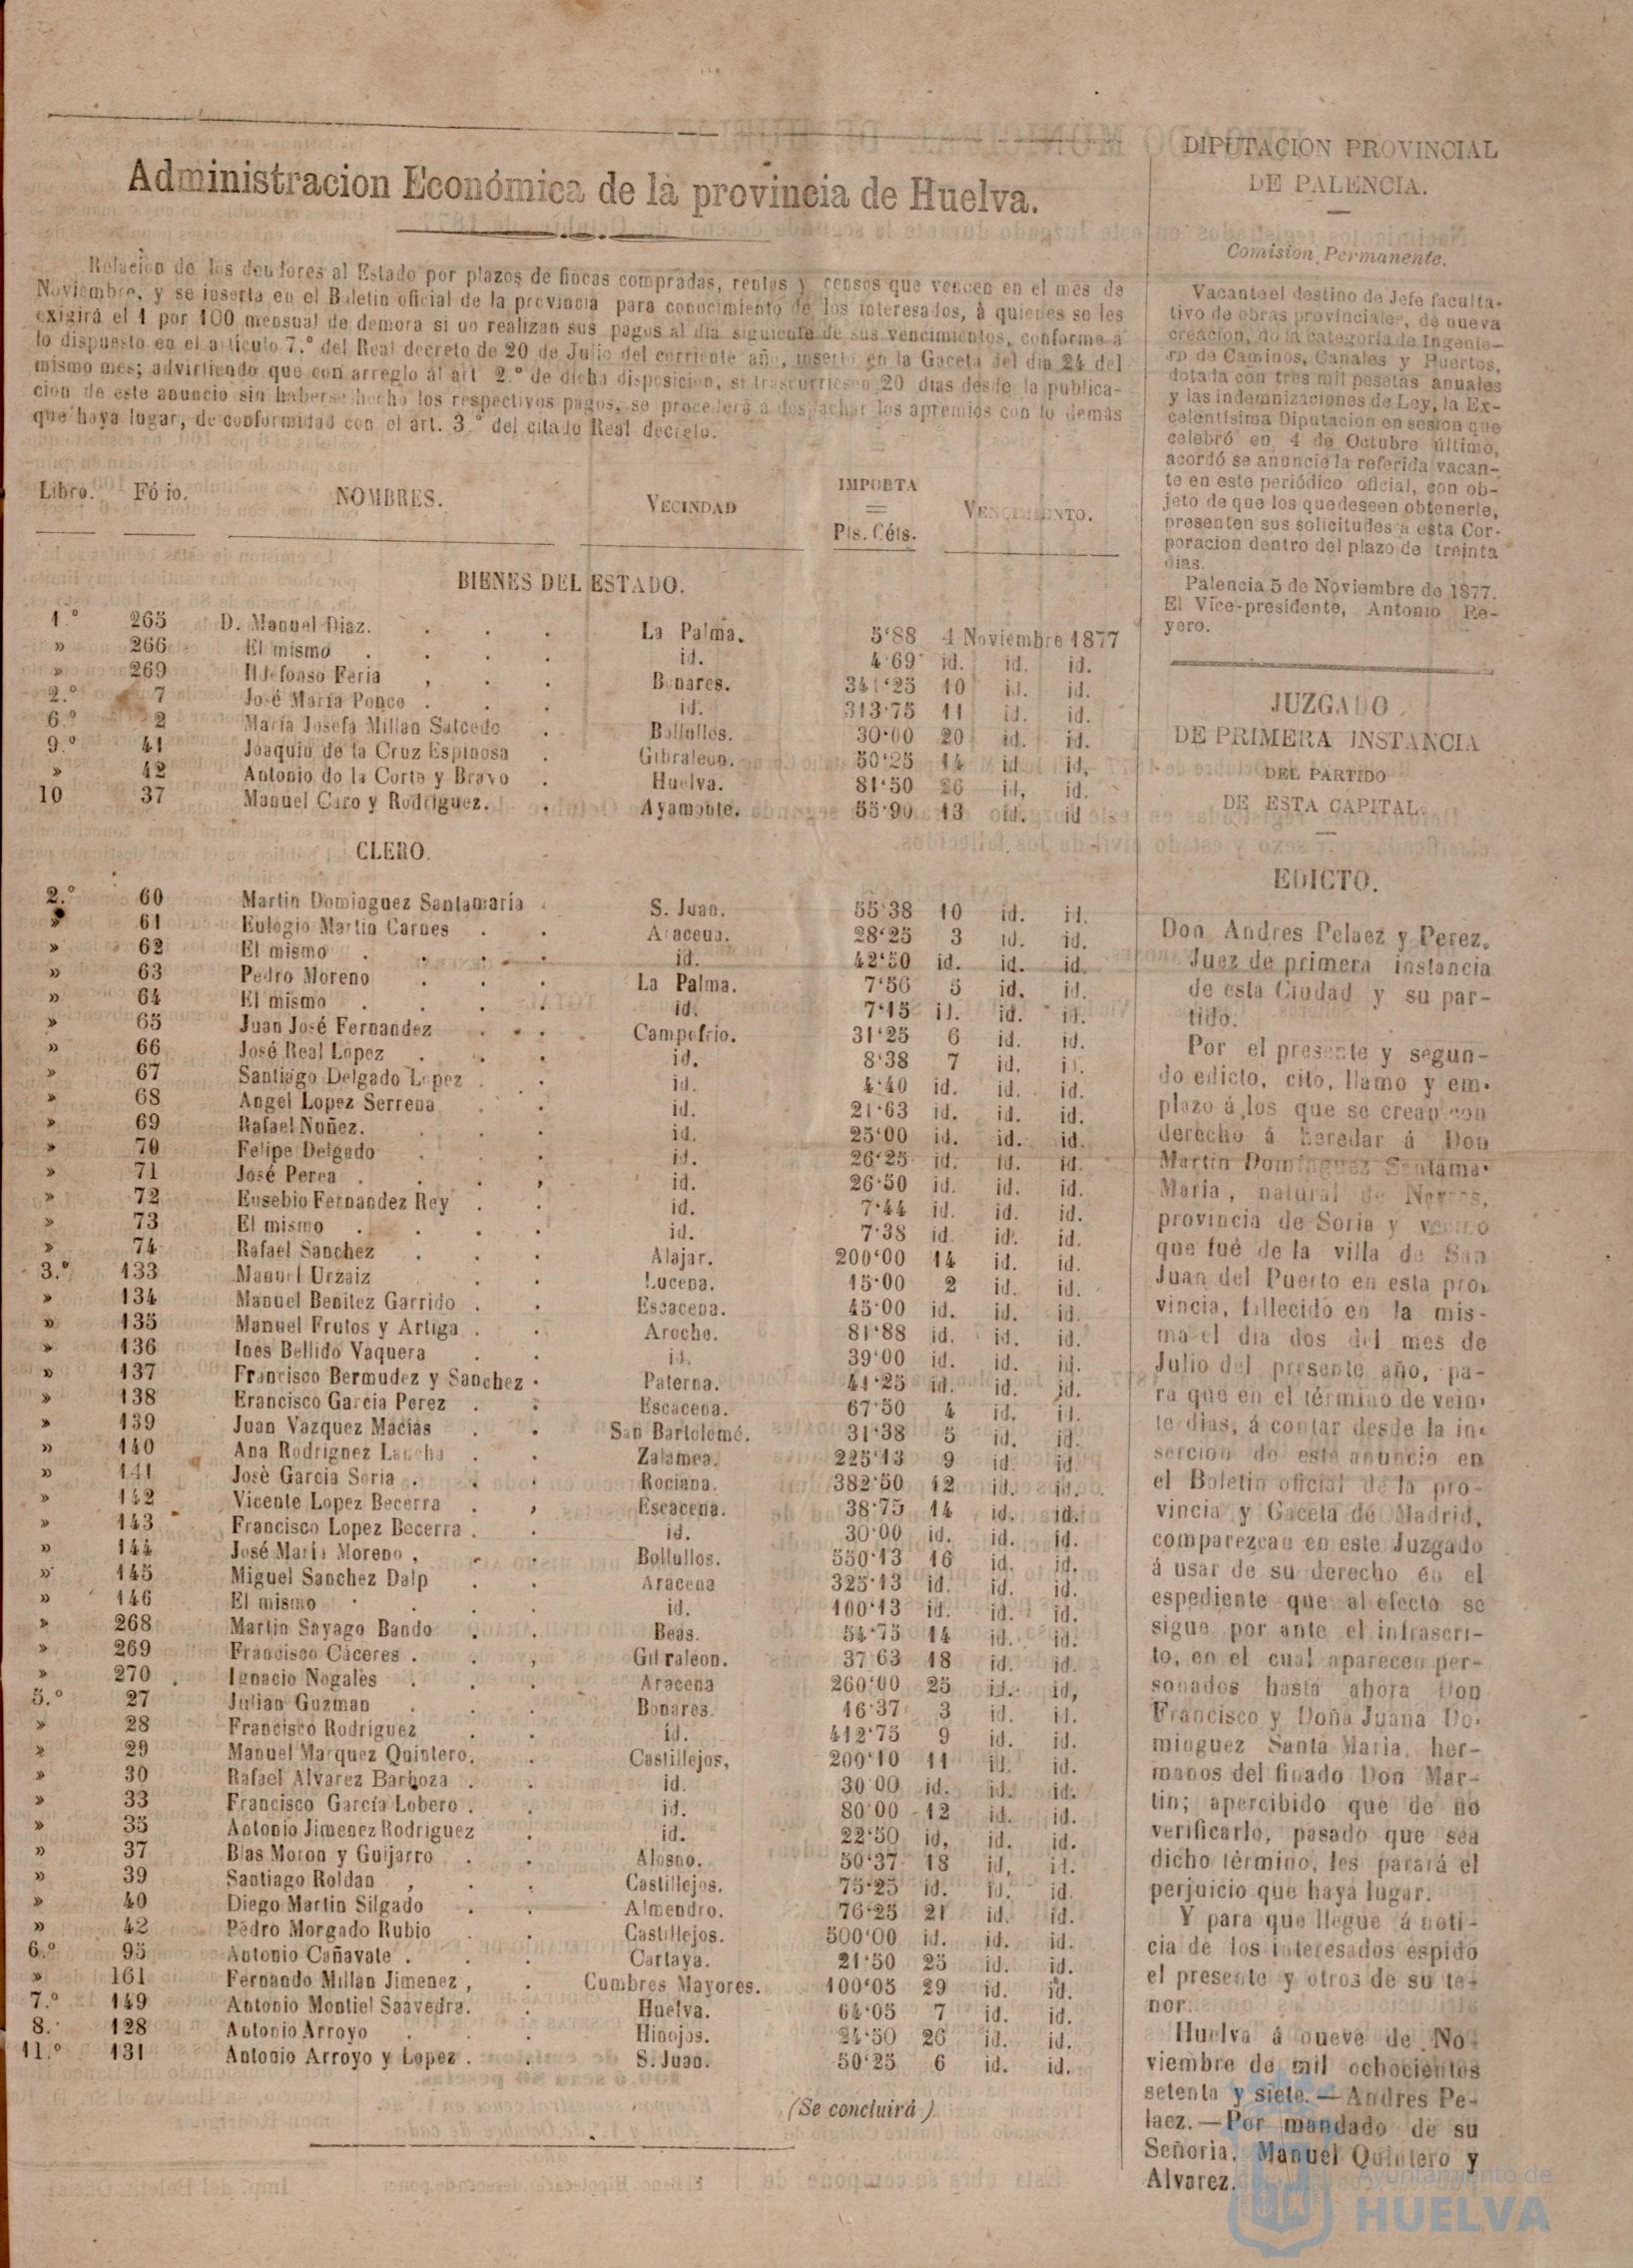 Administracion Económica de la provincia de Huelva.
Relacion de los deudores al Estado por plazos de fincas compradas, rentas y censos que vencen en el mes de
Noviembre, y se inserta en el Boletin oficial de la provincia para conocimiento de los interesados, à quienes se les
exigirá el 1 por 100 mensual de demora si no realizan sus pagos al dia siguiente de sus vencimientos, conforme á
lo dispuesto en el articulo 7.º del Real decreto de 20 de Julio del corriente año, inserto en la Gaceta del dia 24 del
mismo mes; advirtiendo que con arreglo al art 2.º de dicha disposicion, si trascurriesen 20 dias desde la publica-
cion de este anuncio sin haberse hecho los respectivos pagos, se procederá a despachar los apremios con lo demás
que haya lugar, de conformidad con el art. 3.º del citado Real decreto.
Libro. Fó io. NOMBRES. VECINDAD IMPORTA VENCIMIENTO.
Pts. Céts.
BIENES DEL ESTADO.
1.º 265 D. Manuel Diaz. La Palma. 5'88 4 Noviembre 1877
» 266 El mismo id. 4'69 id. id. id.
» 269 Ildefonso Feria Bonares. 341'25 10 id. id.
2.º 7 José María Ponce id. 313'75 11 id. id.
6.º 2 María Josefa Millan Salcedo Bollullos. 30'00 20 id. id.
9.º 41 Joaquin de la Cruz Espinosa Gibraleon. 50'25 14 id id,
» 42 Antonio de la Corte y Bravo Huelva. 81'50 26 id, id.
10 37 Manuel Caro y Rodriguez. Ayamonte. 55'90 13 id. id
CLERO.
2.º 60 Martin Dominguez Santamaría S. Juan. 55'38 10 id. id.
» 61 Eulogio Martin Carnes Aracena. 28'25 3 id. id.
» 62 El mismo id. 42'50 id. id. id.
» 63 Pedro Moreno La Palma. 7'56 5 id. id.
» 64 El mismo id. 7'15 id. id. id.
» 65 Juan José Fernandez Campofrio. 31'25 6 id. id.
» 66 José Real Lopez id. 8'38 7 id. id.
» 67 Santiago Delgado Lopez id. 4'40 id. id. id.
» 68 Angel Lopez Serrena id. 21'63 id. id. id.
» 69 Rafael Nuñez. id. 25'00 id. id. id.
» 70 Felipe Delgado id. 26'25 id. id. id.
» 71 José Perea id. 26'50 id. id. id.
» 72 Eusebio Fernandez Rey id. 7'44 id. id. id.
» 73 El mismo id. 7'38 id. id. id.
» 74 Rafael Sanchez Alajar. 200'00 14 id. id.
3.º 133 Manuel Urzaiz Lucena. 15'00 2 id. id.
» 134 Manuel Benitez Garrido Escacena. 45'00 id. id. id.
» 135 Manuel Frutos y Artiga Aroche. 81'88 id. id. id.
» 136 Inés Bellido Vaquera id. 39'00 id. id. id.
» 137 Francisco Bermudez y Sanchez Paterna. 41'25 id. id. id.
» 138 Francisco Garcia Perez Escacena. 67'50 4 id. id.
» 139 Juan Vazquez Macias San Bartolomé. 31'38 5 id. id.
» 140 Ana Rodriguez Zalamea. 225'13 9 id. id
» 141 José Garcia Soria Rociana. 382'50 12 id. id.
» 142 Vicente Lopez Becerra Escacena. 38'75 14 id. id.
» 143 Francisco Lopez Becerra id. 30'00 id. id. id.
» 144 José María Moreno Bollullos. 550'13 16 id. id.
» 145 Miguel Sanchez Dalp Aracena 325'13 id. id. id.
» 146 El mismo id. 100'13 id. id. id.
» 268 Martin Sayago Bando Beas. 54'75 14 id. id.
» 269 Francisco Cáceres Gibraleon. 37'63 18 id. id.
» 270 Ignacio Nogales Aracena 260'00 25 id. id,
5.º 27 Julian Guzman Bonares. 16'37 3 id. id.
» 28 Francisco Rodriguez id. 412'75 9 id. id.
» 29 Manuel Marquez Quintero. Castillejos, 200'10 11 id. id.
» 30 Rafael Alvarez Barboza id. 30'00 id. id. id.
» 33 Francisco García Lobero id. 80'00 12 id. id.
» 35 Antonio Jimenez Rodriguez id. 22'50 id, id. id.
» 37 Blas Moron y Guijarro Alosno. 50'37 18 id, id.
» 39 Santiago Roldan Castillejos. 75'25 id. id. id.
» 40 Diego Martin Silgado Almendro. 76'25 21 id. id.
» 42 Pedro Morgado Rubio Castillejos. 500'00 id. id. id.
6.º 95 Antonio Cañavate Cartaya. 21'50 25 id. id.
» 161 Fernando Millan Jimenez Cumbres Mayores. 100'05 29 id. id.
7.º 149 Antonio Montiel Saavedra. Huelva. 64'05 7 id. id.
8.º 128 Antonio Arroyo Hinojos. 24'50 26 id. id.
11.º 131 Antonio Arroyo y Lopez S. Juan. 50'25 6 id. id.
(Se concluirá)
DIPUTACION PROVINCIAL
DE PALENCIA.
Comision Permanente.
Vacante el destino de Jefe faculta-
tivo de obras provinciales, de nueva
creacion, de la categoría de Ingenie-
ro de Caminos, Canales y Puertos,
dotada con tres mil pesetas anuales
y las indemnizaciones de Ley, la Ex-
celentísima Diputacion en sesion que
celebró en 4 de Octubre último,
acordó se anuncie la referida vacan-
te en este periódico oficial, con ob-
jeto de que los que deseen obtenerle,
presenten sus solicitudes a esta Cor-
poracion dentro del plazo de treinta
dias.
Palencia 5 de Noviembre de 1877.
El Vice-presidente, Antonio Re-
yero.
JUZGADO
DE PRIMERA INSTANCIA
DEL PARTIDO
DE ESTA CAPITAL.
EDICTO.
Don Andres Pelaez y Perez,
Juez de primera instancia
de esta Ciudad y su par-
tido.
Por el presente y segun-
do edicto, cito, llamo y em-
plazo á los que se crean con
derecho á heredar á Don
Martin Dominguez Santama-
Maria, natural de
provincia de Soria y vecino
que fué de la villa de San
Juan del Puerto en esta pro-
vincia, fallecido en la mis-
ma el dia dos del mes de
Julio del presente año, pa-
ra que en el término de vein-
te dias, á contar desde la in-
sercion de este anuncio en
el Boletin oficial de la pro-
vincia y Gaceta de Madrid,
comparezcan en este Juzgado
á usar de su derecho en el
espediente que al efecto se
sigue por ante el infrascri-
to, en el cual aparecen per-
sonados hasta ahora Don
Francisco y Doña Juana Do-
minguez Santa Maria, her-
manos del finado Don Mar-
tin; apercibido que de no
verificarlo, pasado que sea
dicho término, les parará el
perjuicio que haya lugar.
Y para que llegue á noti-
cia de los interesados espido
el presente y otros de su te-
nor.
Huelva á nueve de No-
viembre de mil ochocientos
setenta y siete.—Andres Pe-
laez.—Por mandado de su
Señoria, Manuel Quintero y
Alvarez.
Ayuntamiento de
HUELVA